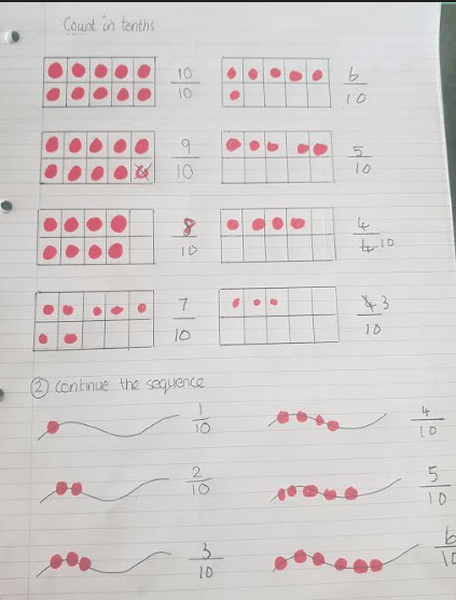 Count in tenths
10/10 6/10
9/10 5/10
8/10 4/10
7/10 3/10
② continue the sequence
1/10 4/10
2/10 5/10
3/10 6/10